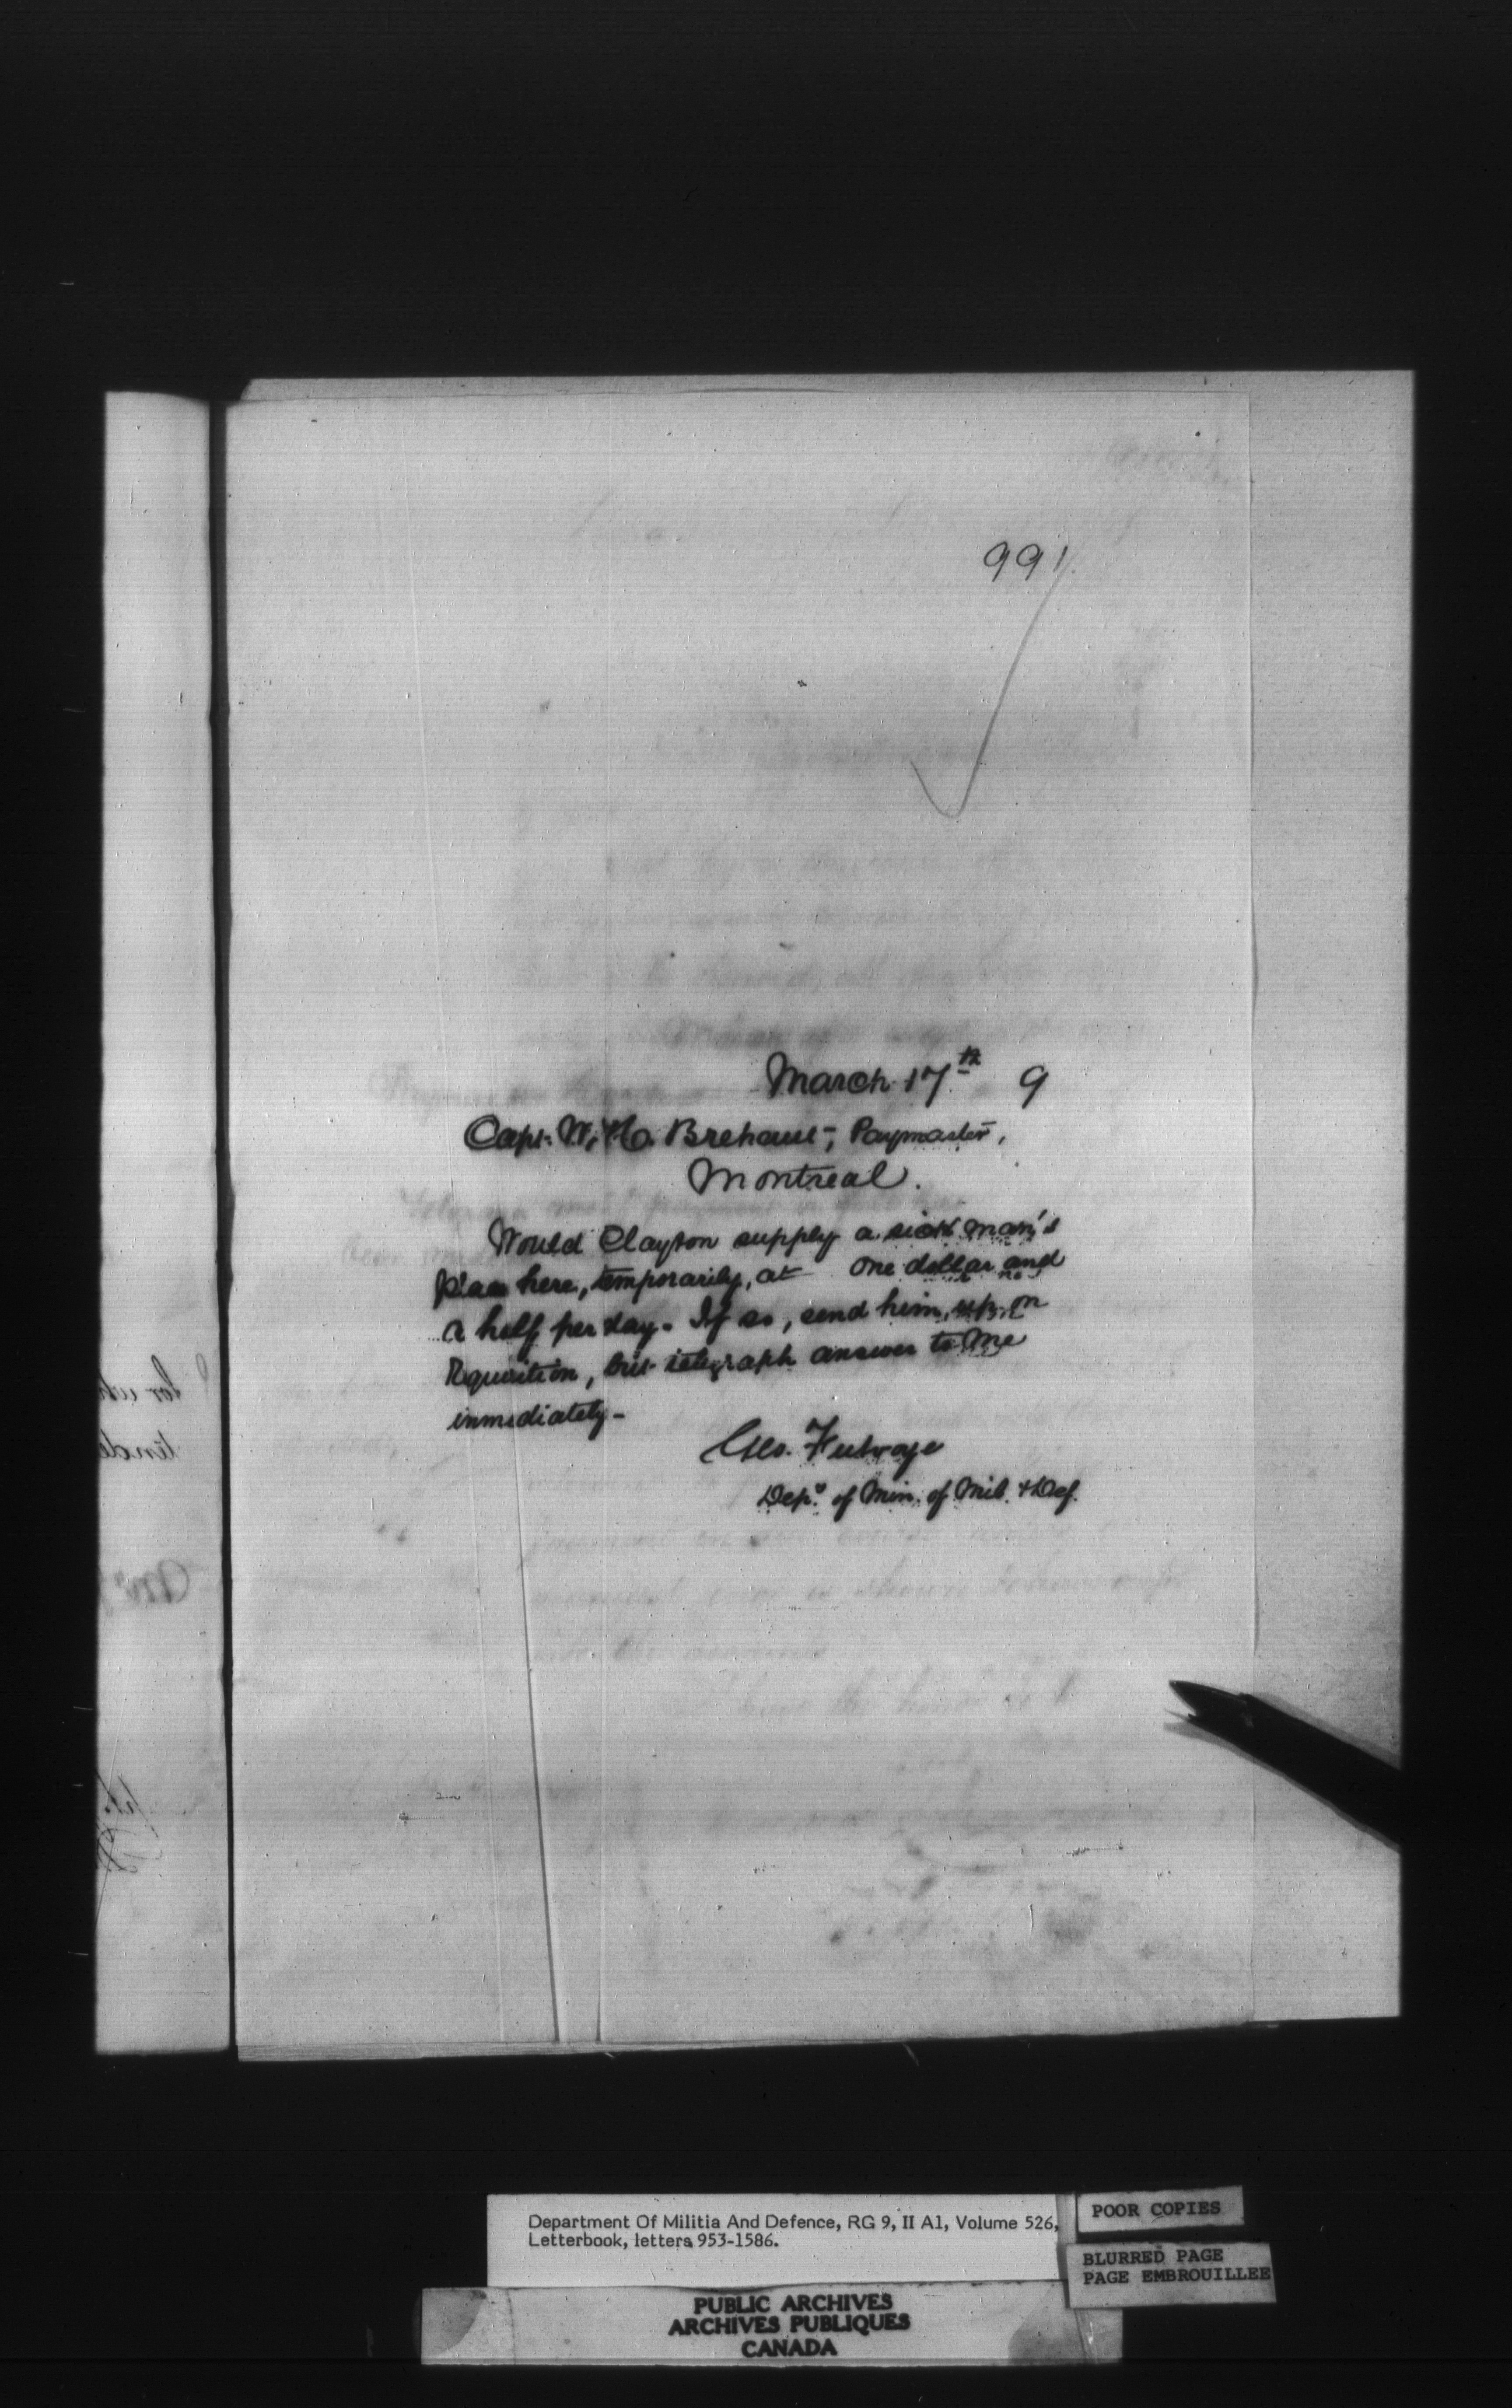 991
March 17th 9
Capt. W. H. Brehaut, Paymaster,
Montreal.
Would Clayton supply a sick man's
place here, temporarily, at one dollar and
a half per day. If so, send him, up on
Requisition, but telegraph answer to me
immediately.
Geo. Futvoye
Depy of Min. of Mil. & Def.
Department Of Militia And Defence, RG 9, II A1, Volume 526,
Letterbook, letters 953-1586.
POOR COPIES
BLURRED PAGE
PAGE EMBROUILLEE
PUBLIC ARCHIVES
ARCHIVES PUBLIQUES
CANADA